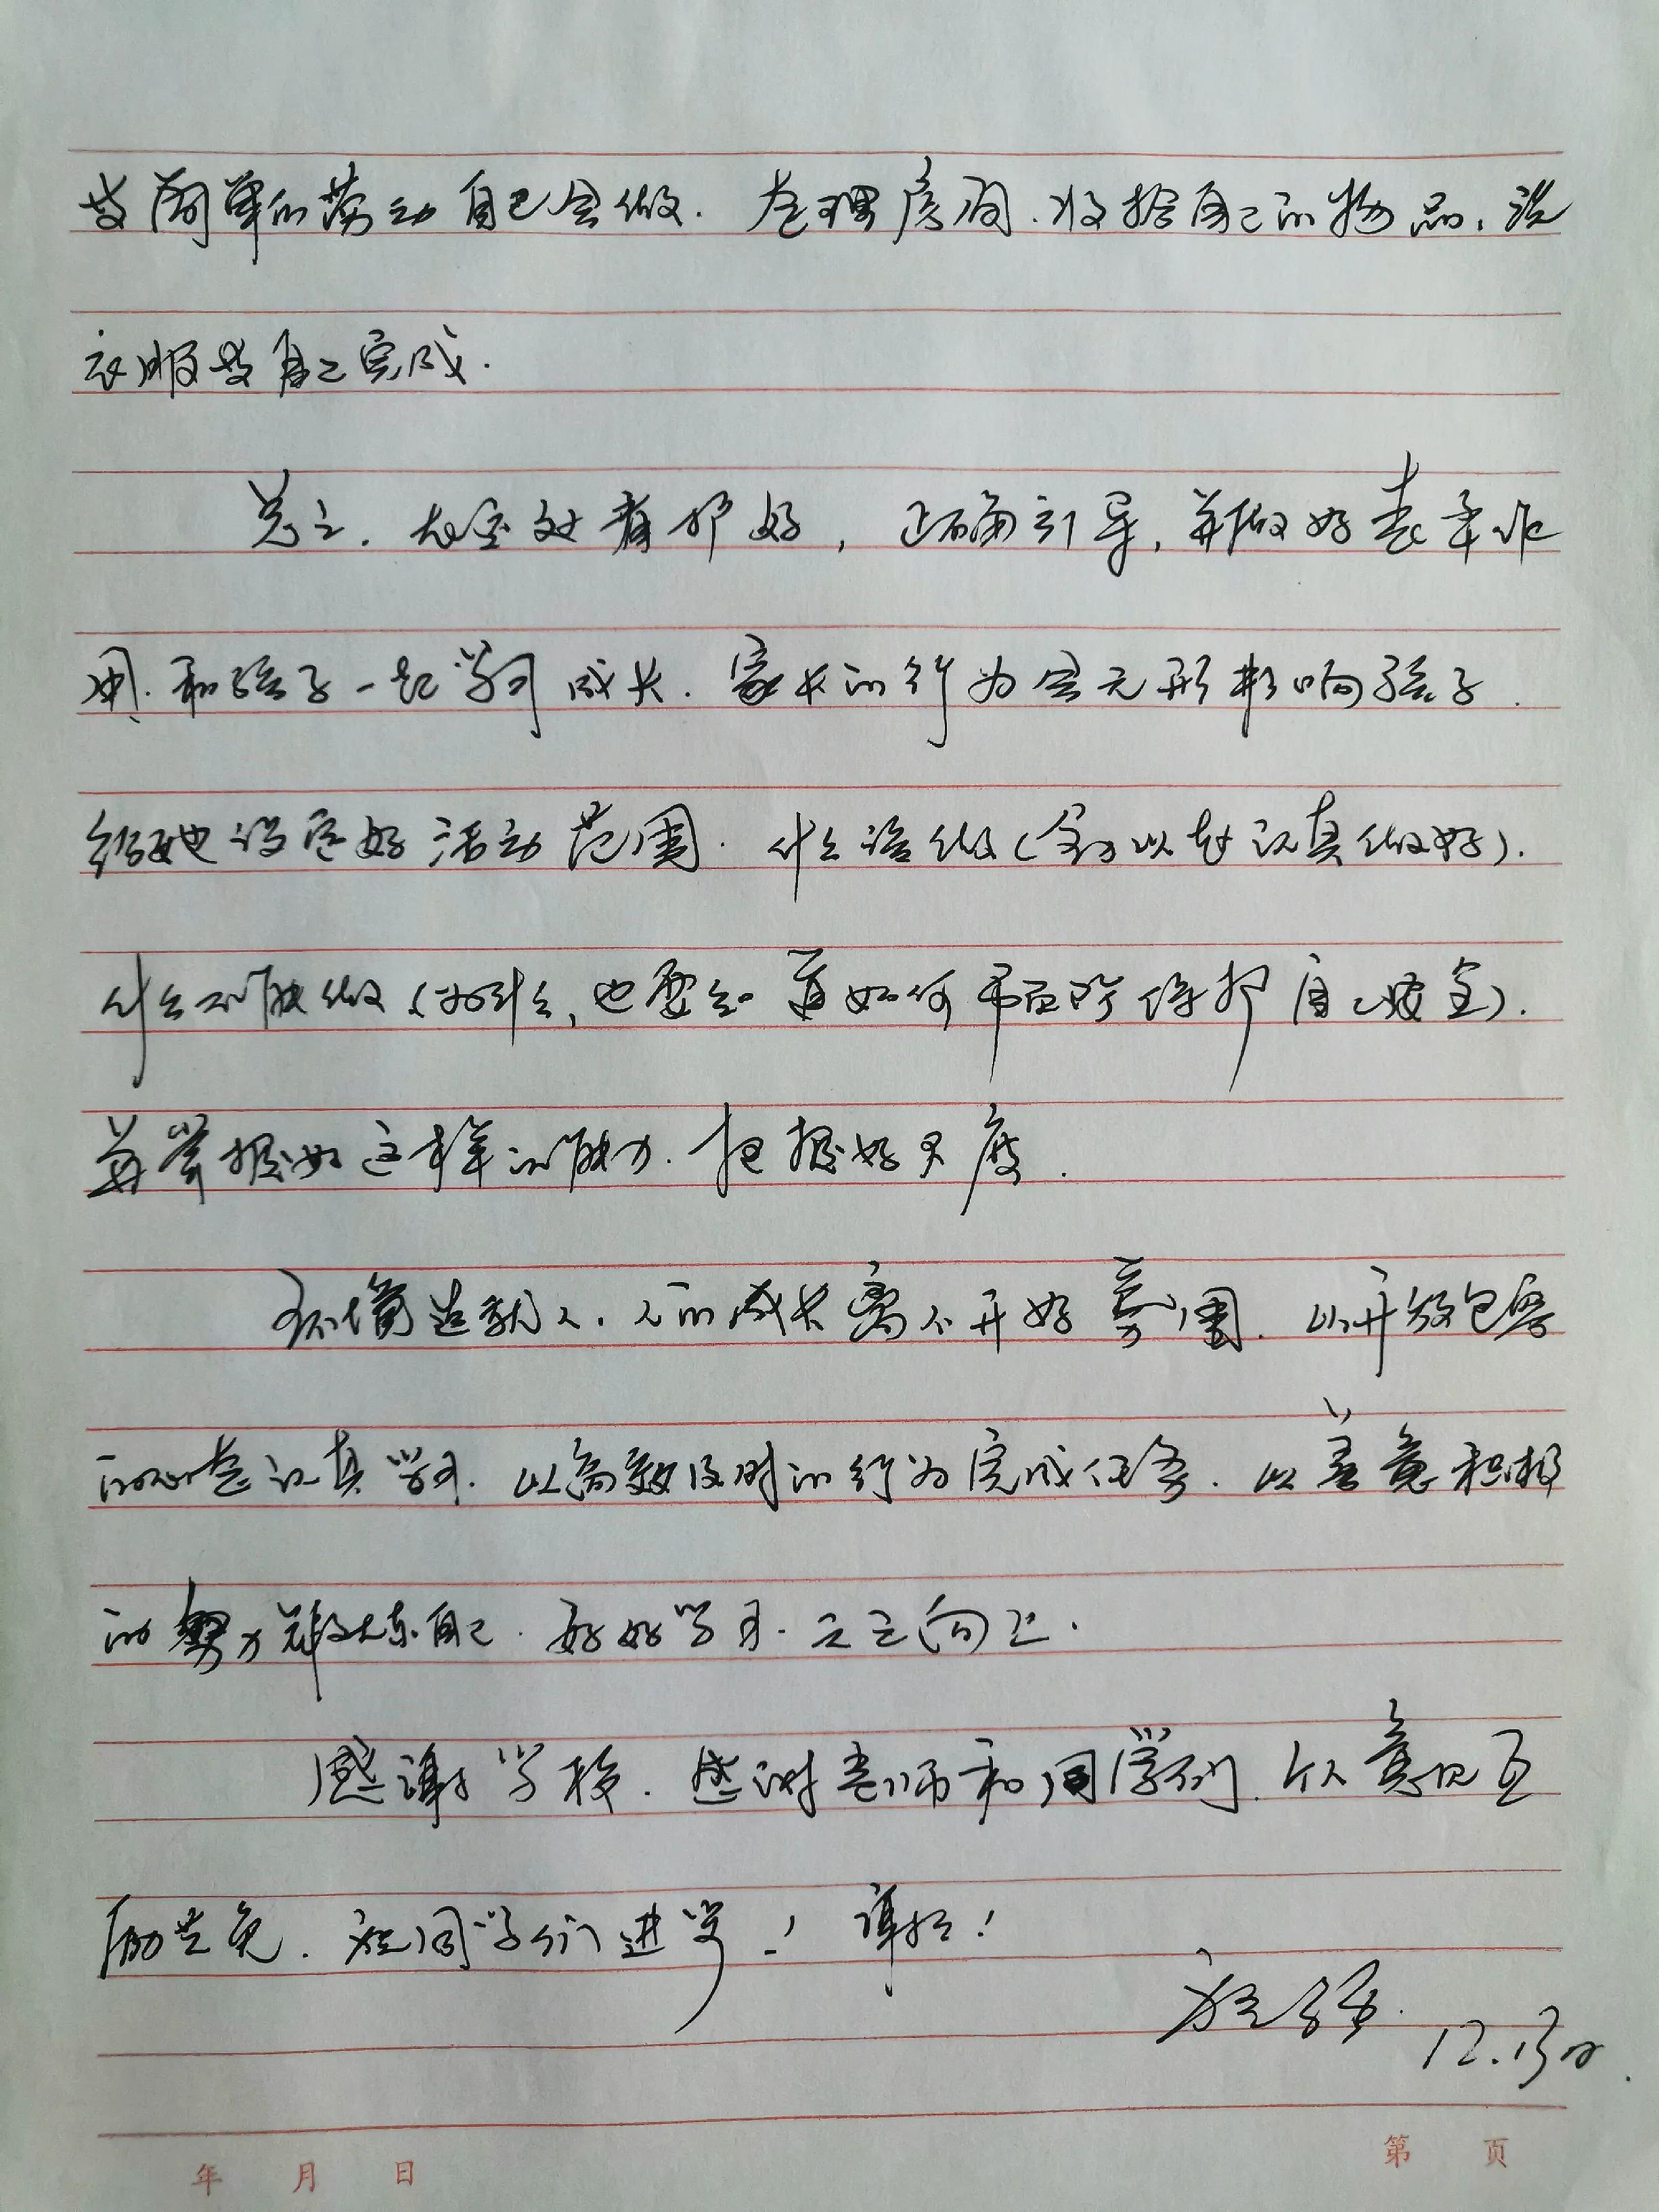 对简单的劳动自己会做. 整理房间. 收拾自己的物品, 洗
衣服等自己完成.
总之. 在学校看护好, 正确引导, 并做好表率作
用. 和孩子一起学习成长. 家长的行为会无形影响孩子.
给她设定好活动范围. 什么该做(全力以赴认真做好).
什么不能做(为什么, 也要知道如何 保护自己安全).
并掌握好这样的能力. 把握好尺度.
环境造就人. 人的成长离不开好氛围. 以开放包容
的心态认真学习. 以高效及时的行为完成任务. 以善意积极
的努力锻炼自己. 好好学习. 天天向上.
感谢学校. 感谢老师和同学们.
励共勉. 祝同学们进步! 谢谢!
12.13日.
年 月 日
第 页